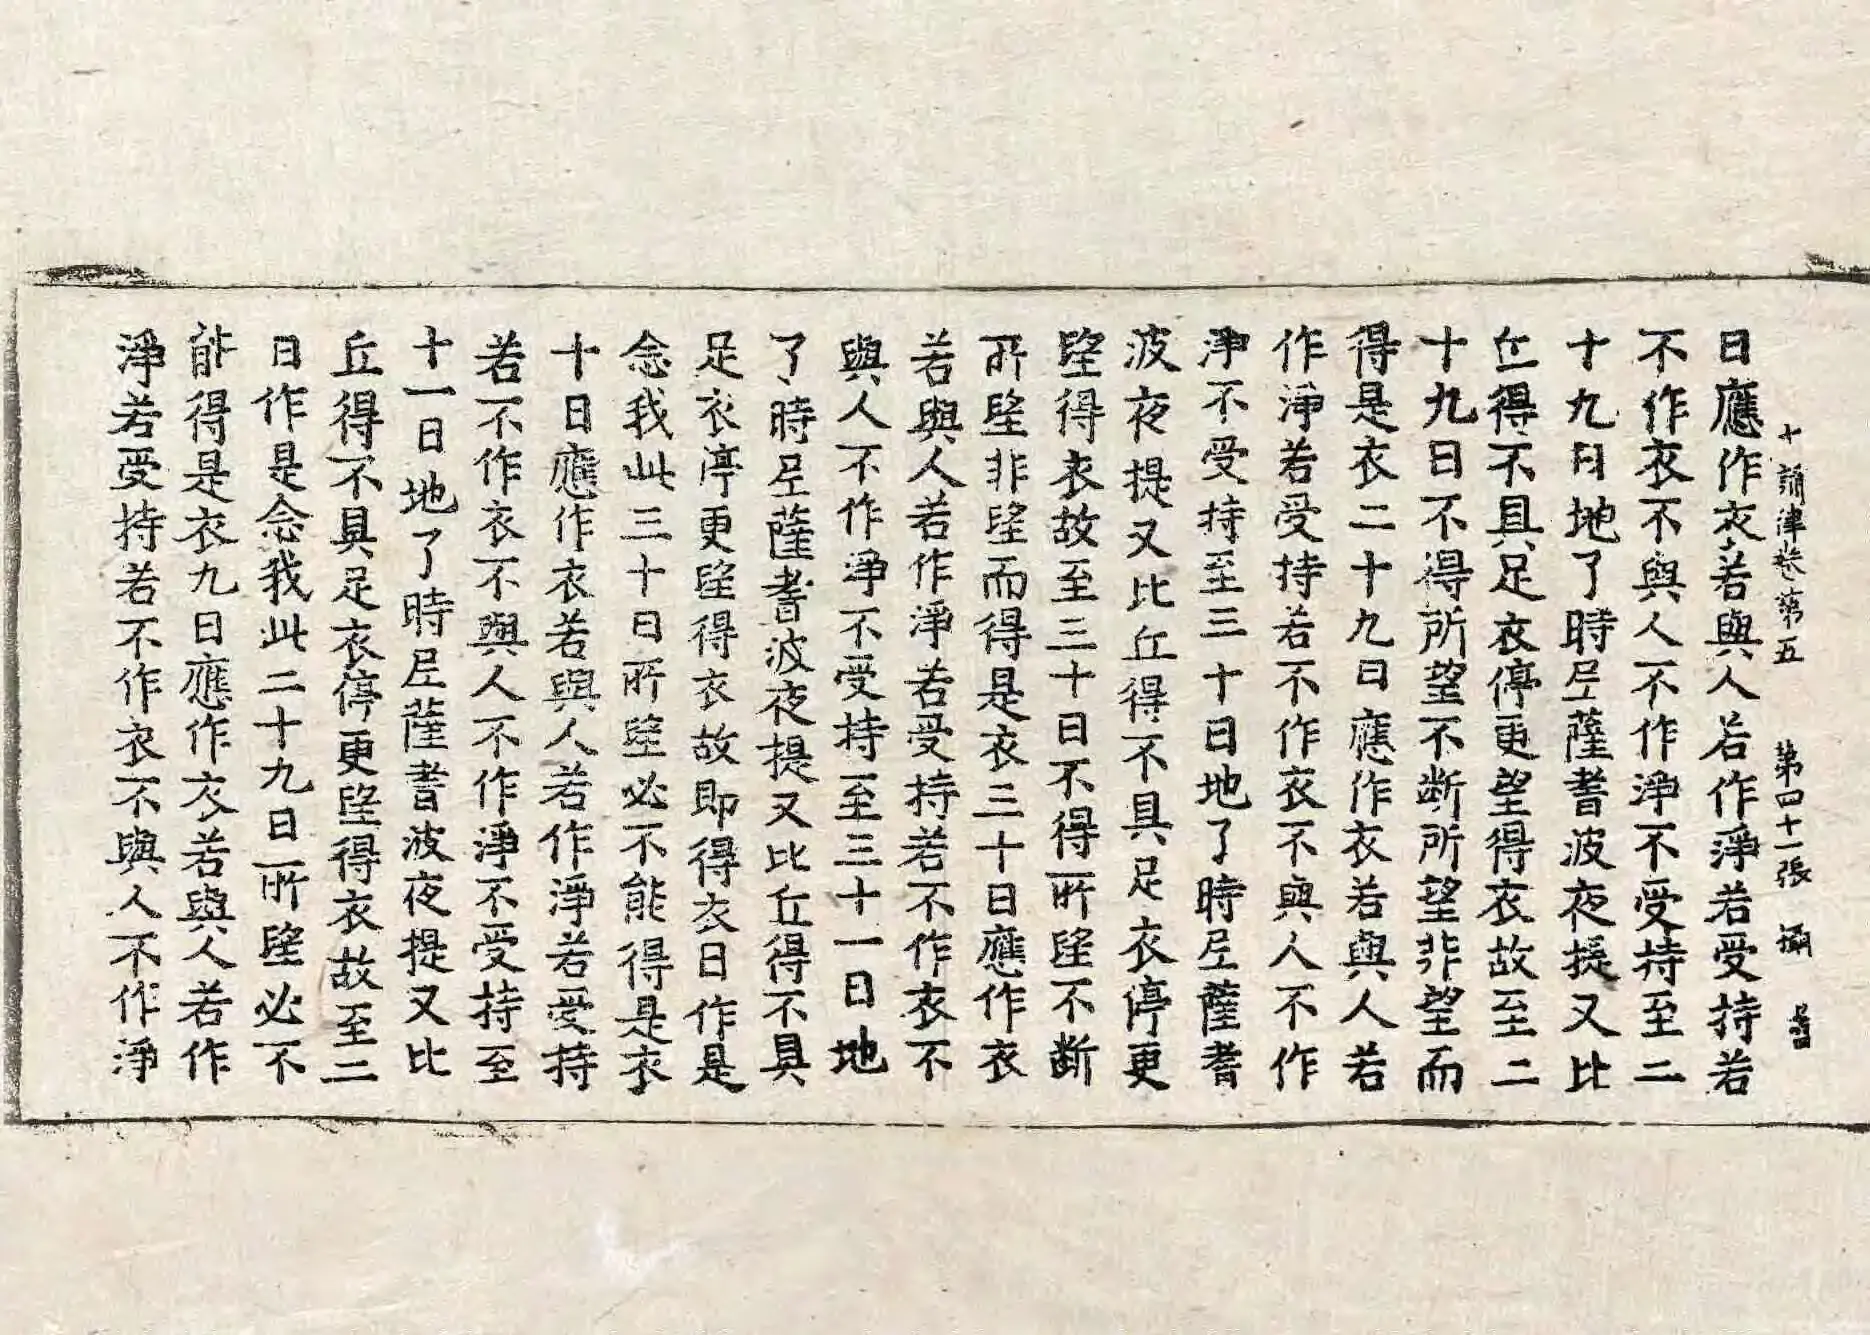 十誦律卷第五 第四十一張 攝
日應作衣若與人若作淨若受持若
不作衣不與人不作淨不受持至二
十九日地了時尼薩耆波夜提又比
丘得不具足衣停更望得衣故至二
十九日不得所望不断所望非望而
得是衣二十九日應作衣若與人若
作淨若受持若不作衣不與人不作
淨不受持至三十日地了時尼薩耆
波夜提又比丘得不具足衣停更
望得衣故至三十日不得所望不断
所望非望而得是衣三十日應作衣
若與人若作淨若受持若不作衣不
與人不作淨不受持至三十一日地
了時尼薩耆波夜提又比丘得不具
足衣停更望得衣故即得衣日作是
念我此三十日所望必不能得是衣
十日應作衣若與人若作淨若受持
若不作衣不與人不作淨不受持至
十一日地了時尼薩耆波夜提又比
丘得不具足衣停更望得衣故至二
日作是念我此二十九日所望必不
能得是衣九日應作衣若與人若作
淨若受持若不作衣不與人不作淨